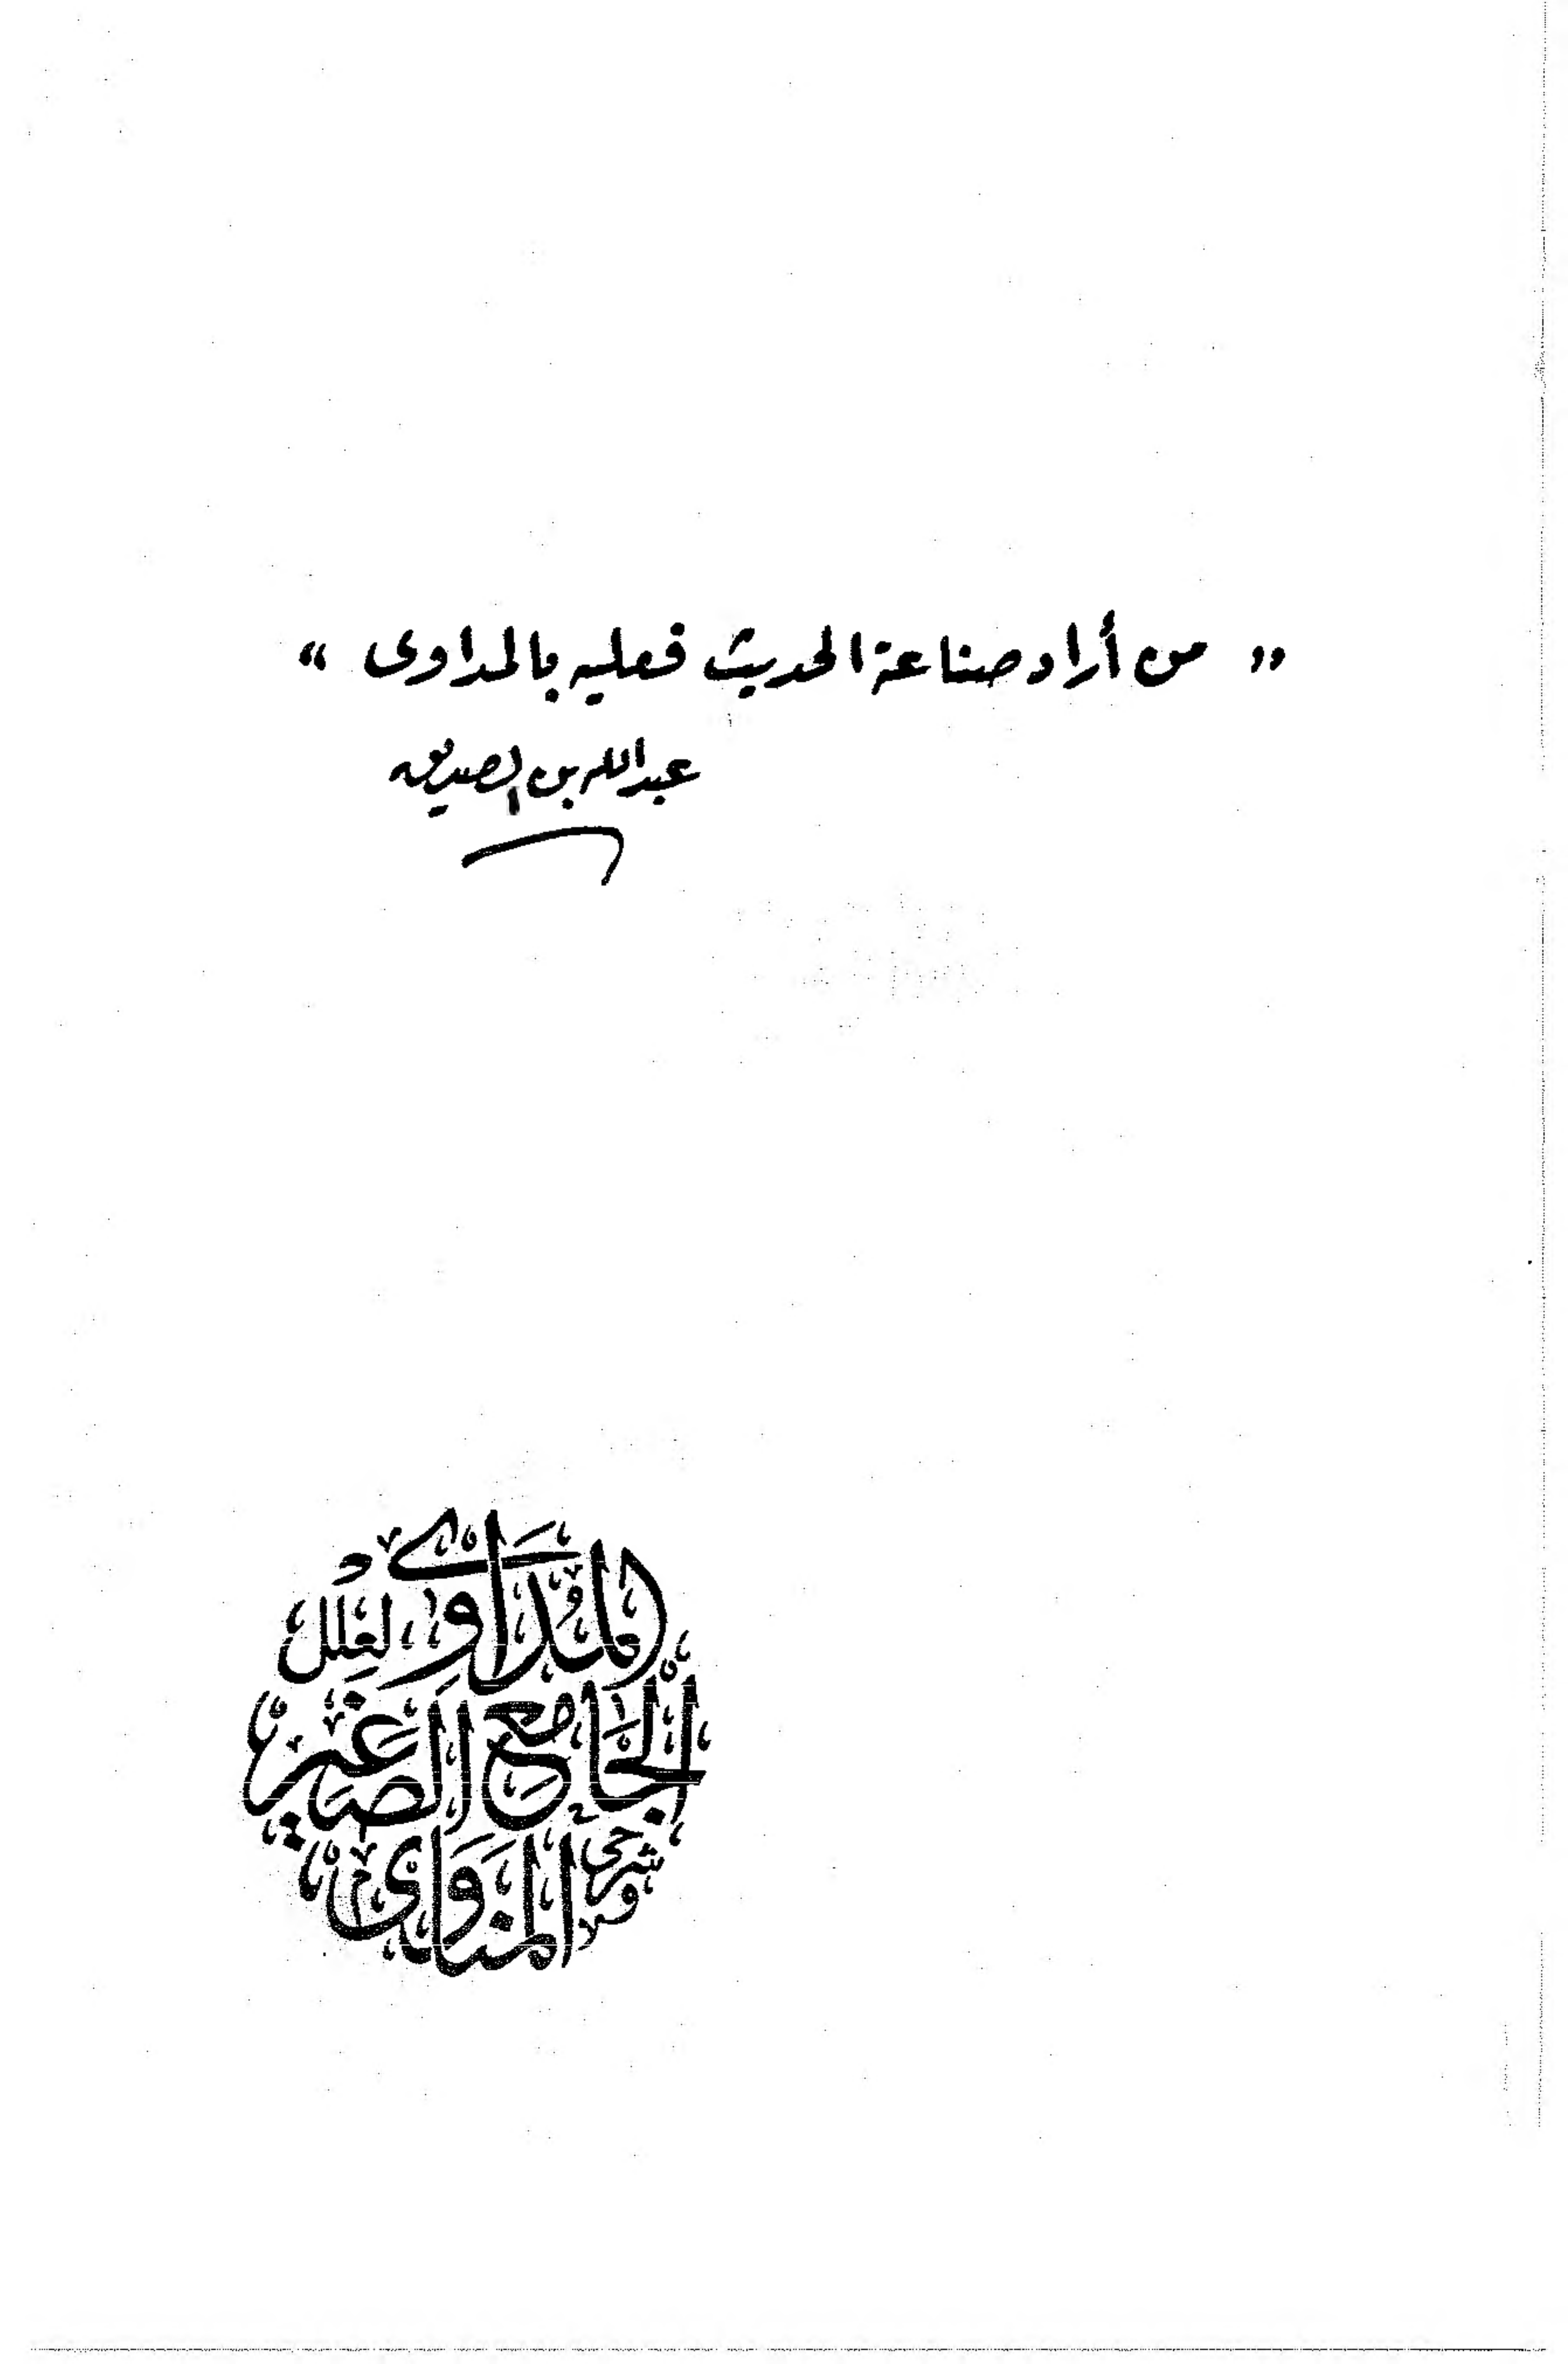 " من أراد صناعة الحديث فعليه بالمداوى "
عبد الله بن الصديق
المُدَاوِي لِعِلَلِ
الجَامِعِ الصَّغِيرِ
وشرحي المُنَاوِي